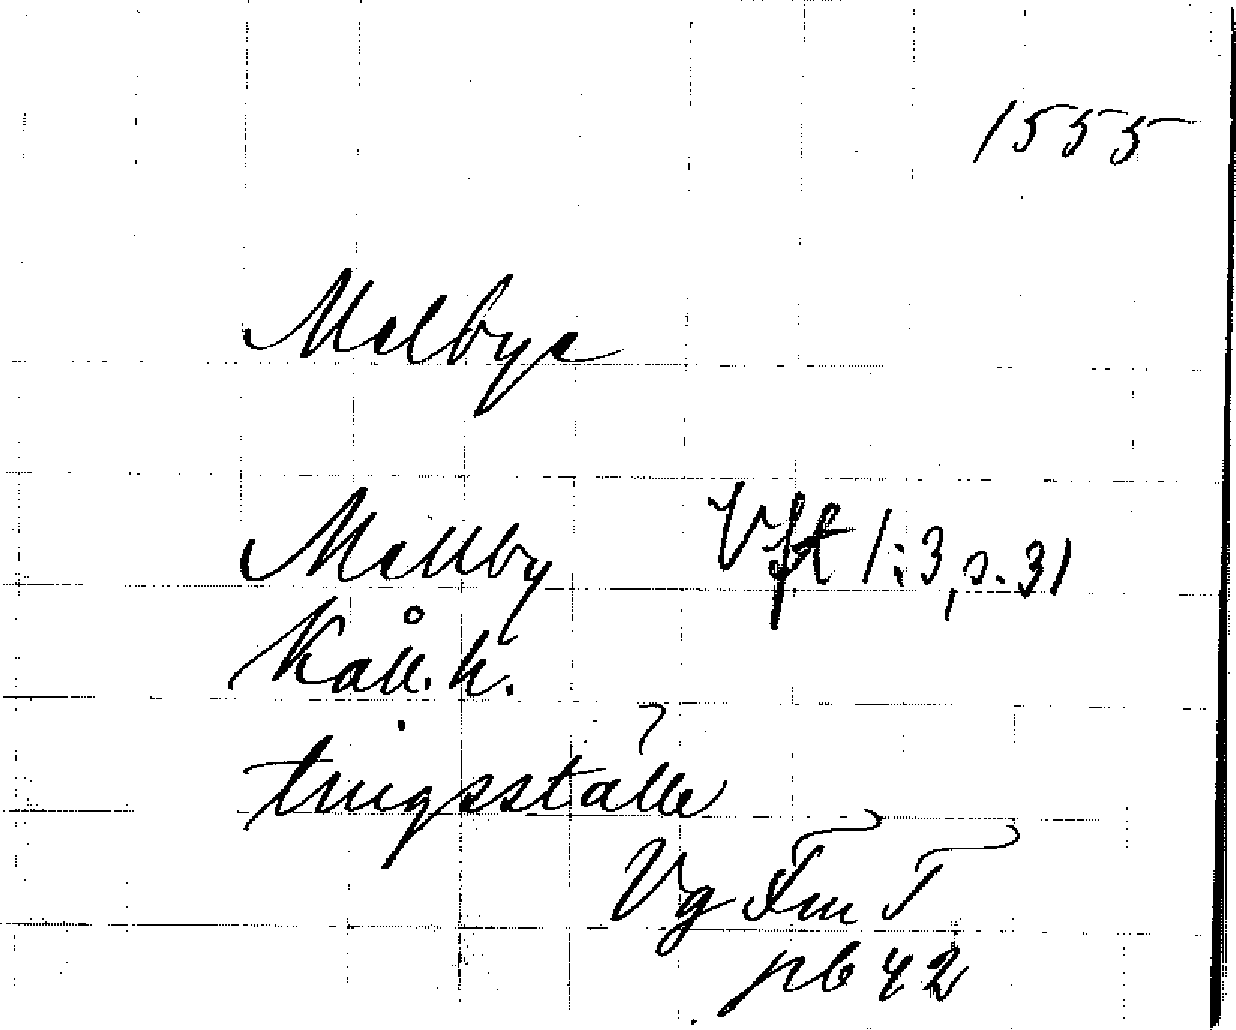 1555
Melbye
Mellby Vft 1:3, s. 31
Kåll. h.
tingsställe
Vg Fm T
pb 42